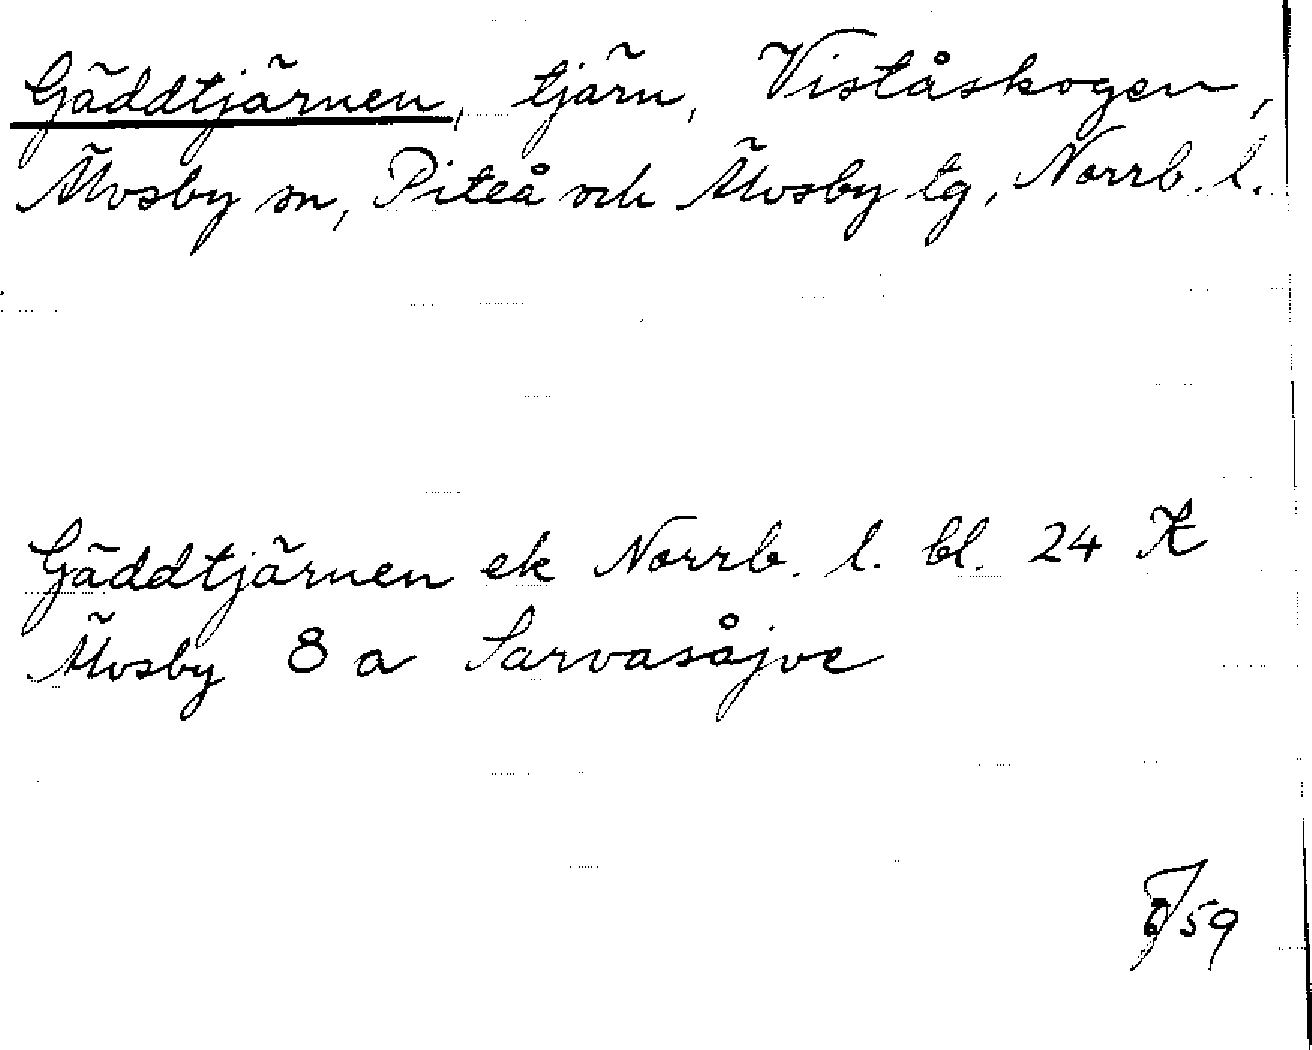 Gäddtjärnen, tjärn, Viståskogen,
Älvsby sn, Piteå och Älvsby tg, Norrb. l.
Gäddtjärnen ek Norrb. l. bl. 24
Älvsby 8 a Sarvasåjve
59